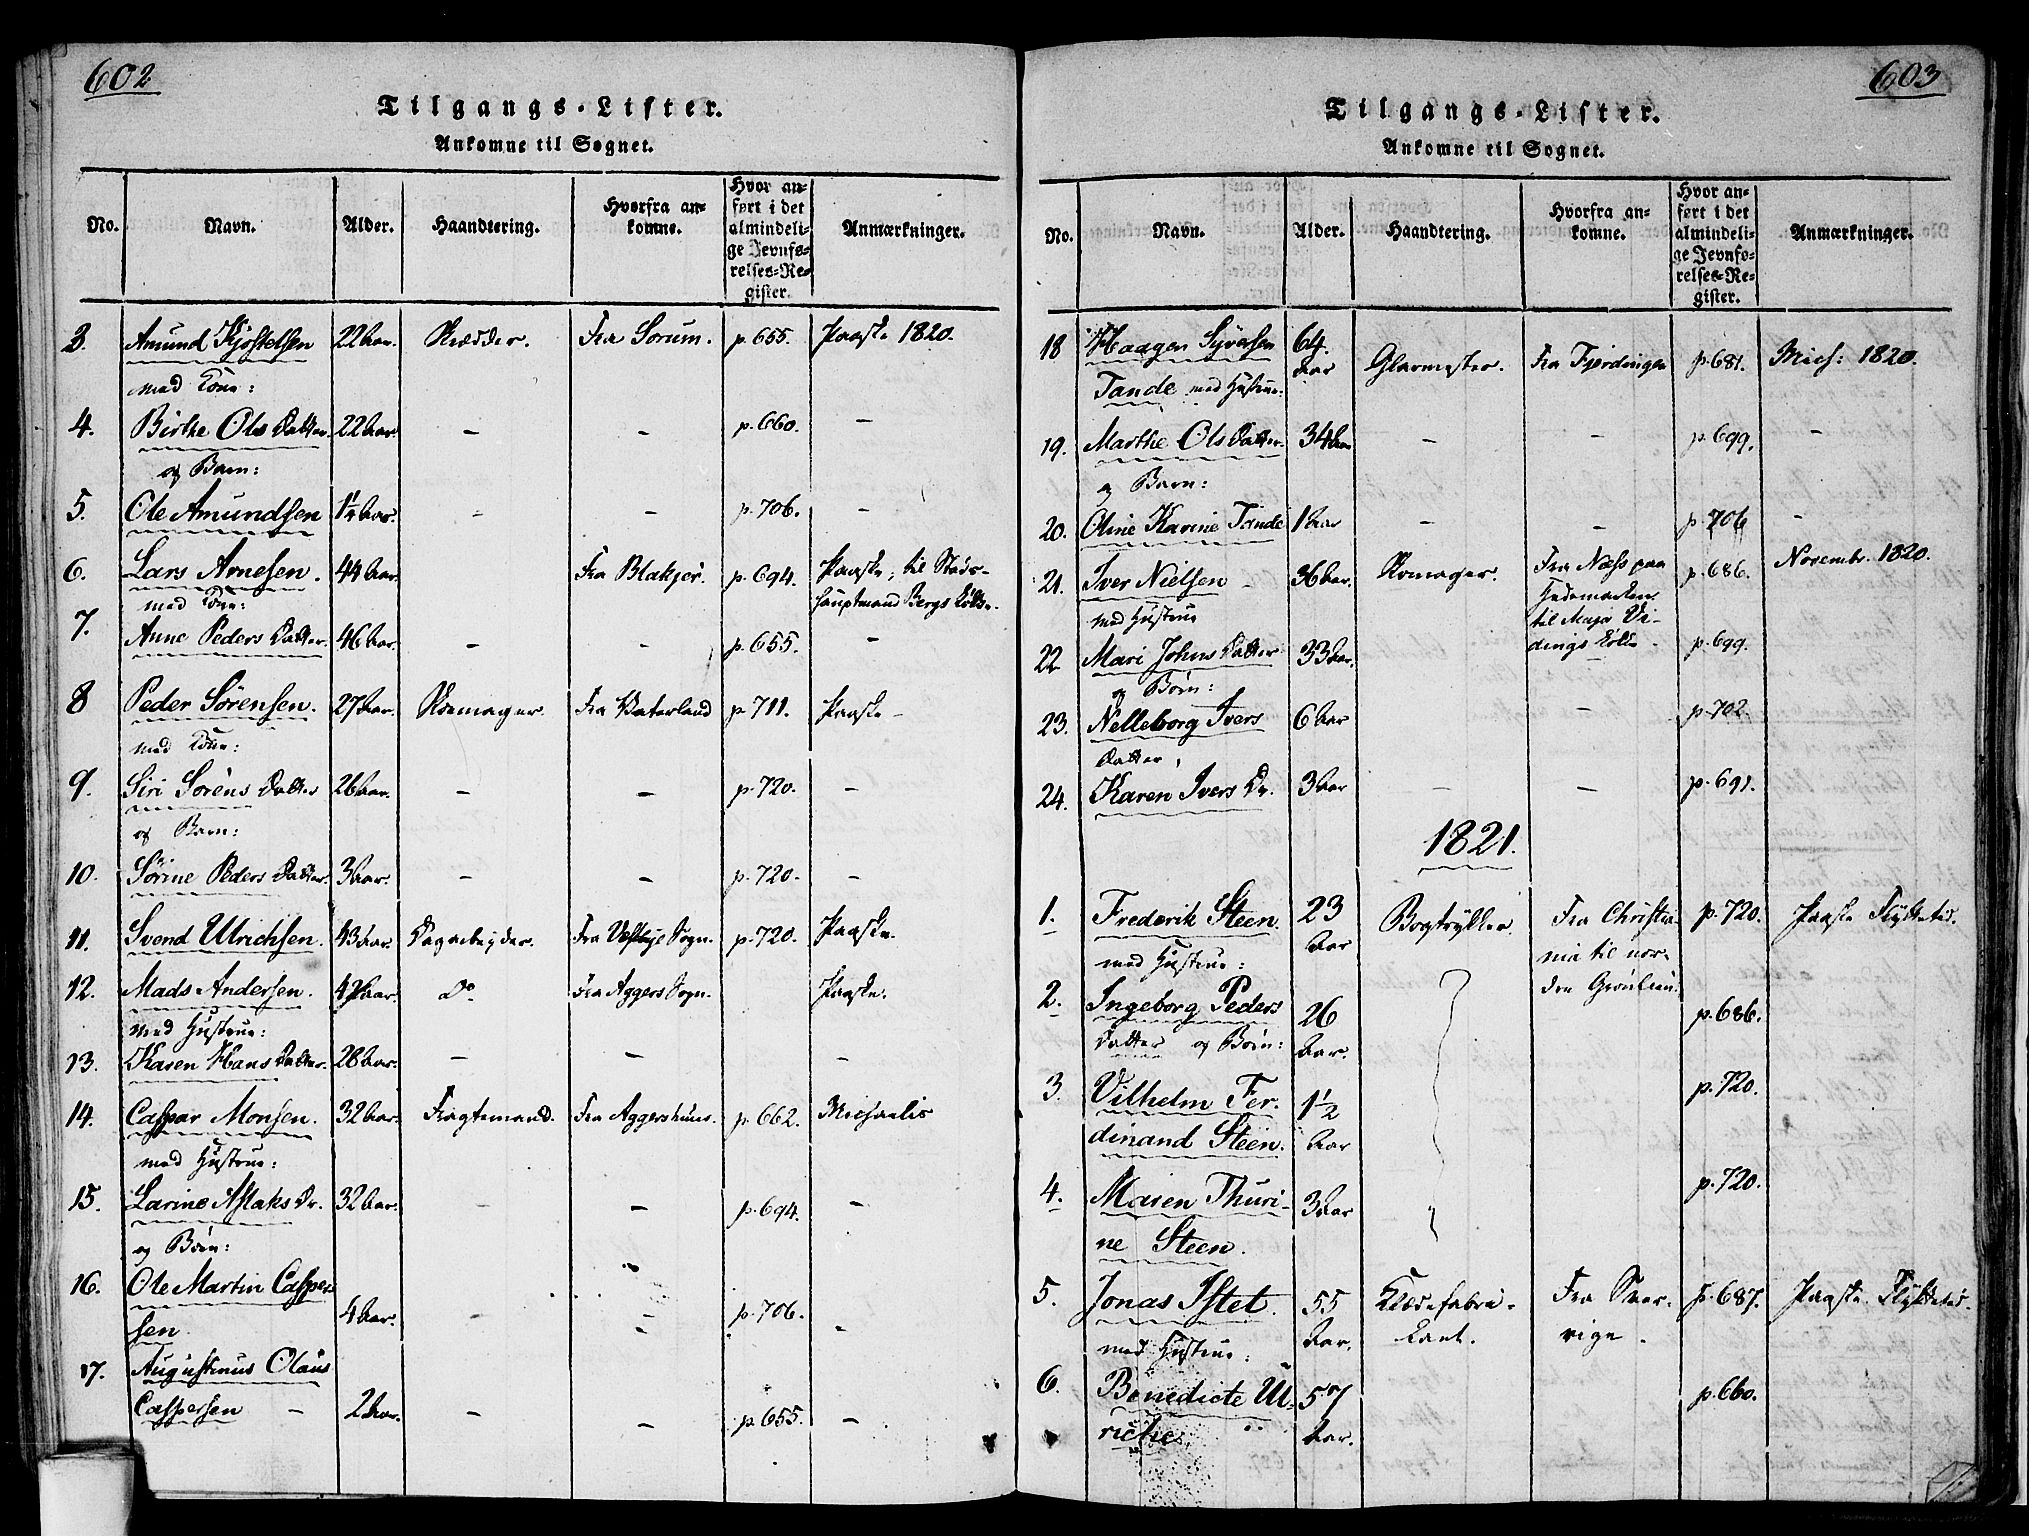 602
Tilgangs-Lister.
Ankomne til Sognet.
No. Navn. Alder. Haandtering. Hvorfra ankomne. Hvor anført i det almindelige Jevnførelses-Register. Anmærkninger.
3. Amund Kjøstelsen 22 Aar. Fra Sørum. p. 655. Paaske 1820.
med Kone:
4. Birthe Ols Datter 22 Aar. – – p. 660. –
og Barn:
5. Ole Amundsen 1½ Aar. – – p. 706. –
6. Lars Arnesen. 44 Aar. Fra Blakjer. p. 694. Paaske, til Stads-
med Kone: hauptmand Bergs Løkke.
7. Anne Peders Datter. 46 Aar. – – p. 655. –
8 Peder Sørensen. 27 Aar. Fra Vaterland p. 711. Paaske –
med Kone:
9. Siri Sørens Datter 26 Aar. – – p. 720. –
og Barn:
10. Sørine Peders Datter. 3 Aar. – – p. 720. –
11. Svend Ulrichsen. 43 Aar. Dagarbejder. Fra Vestbye Sogn. p. 720. Paaske.
12. Mads Andersen. 42 Aar. Do Fra Aggers Sogn. Paaske.
med Hustrue:
13. Karen Hans Datter. 28 Aar. – – –
14. Caspar Monsen. 32 Aar. Fragtemand. Fra Aggershuus. p. 662. Michaelis
med Hustrue:
15. Larine Aslaks Dr. 32 Aar. – – p. 694. –
og Börn:
16. Ole Martin Casper-
sen. 4 Aar. – – p. 706. –
17. Augustinus Olaus
Caspersen – 2 Aar. – – p. 655. –
603
Tilgangs-Lister.
Ankomne til Sognet.
No. Navn. Alder. Haandtering. Hvorfra ankomne. Hvor anført i det almindelige Jevnførelses-Register. Anmærkninger.
18 Haagen Syversen 64. Aar Glarmester. Fra Fjerdingen p. 681. Mich: 1820.
Tande med Hustrue:
19. Marthe Ols Datter. 34 Aar – – p. 699. –
og Barn:
20. Oline Karine Tande 1 Aar – – p. 706 –
21. Iver Nielsen 36 Aar. Fra Næss paa p. 686. Novembr. 1820.
med Hustrue Hedemarken
til Major
22 Mari Johns Datter 33 Aar. p. 699.
og Börn:
23. Nelleborg Ivers 6 Aar – p. 702.
Datter,
24. Karen Ivers Dr. 3 Aar – – p. 691.
1821.
1. Frederik Steen. 23 Aar Bogtrykker. Fra Christia- p. 720. Paaske Flyttetid.
med Hustrue: nia til nor-
dre Grønlien.
2. Ingeborg Peders 26 Aar. p. 686.
Datter og Börn:
3. Vilhelm Fer- 1½ Aar p. 720.
dinand Steen.
4. Maren Thuri- 3 Aar p. 720.
ne Steen.
5. Jonas Istet. 55 Aar. Klædefabri- Fra Sver- p. 687. Paaske Flyttetid.
med Hustrue: kant. rige.
6. Benedicte Ul- 57 Aar. p. 660.
riche.